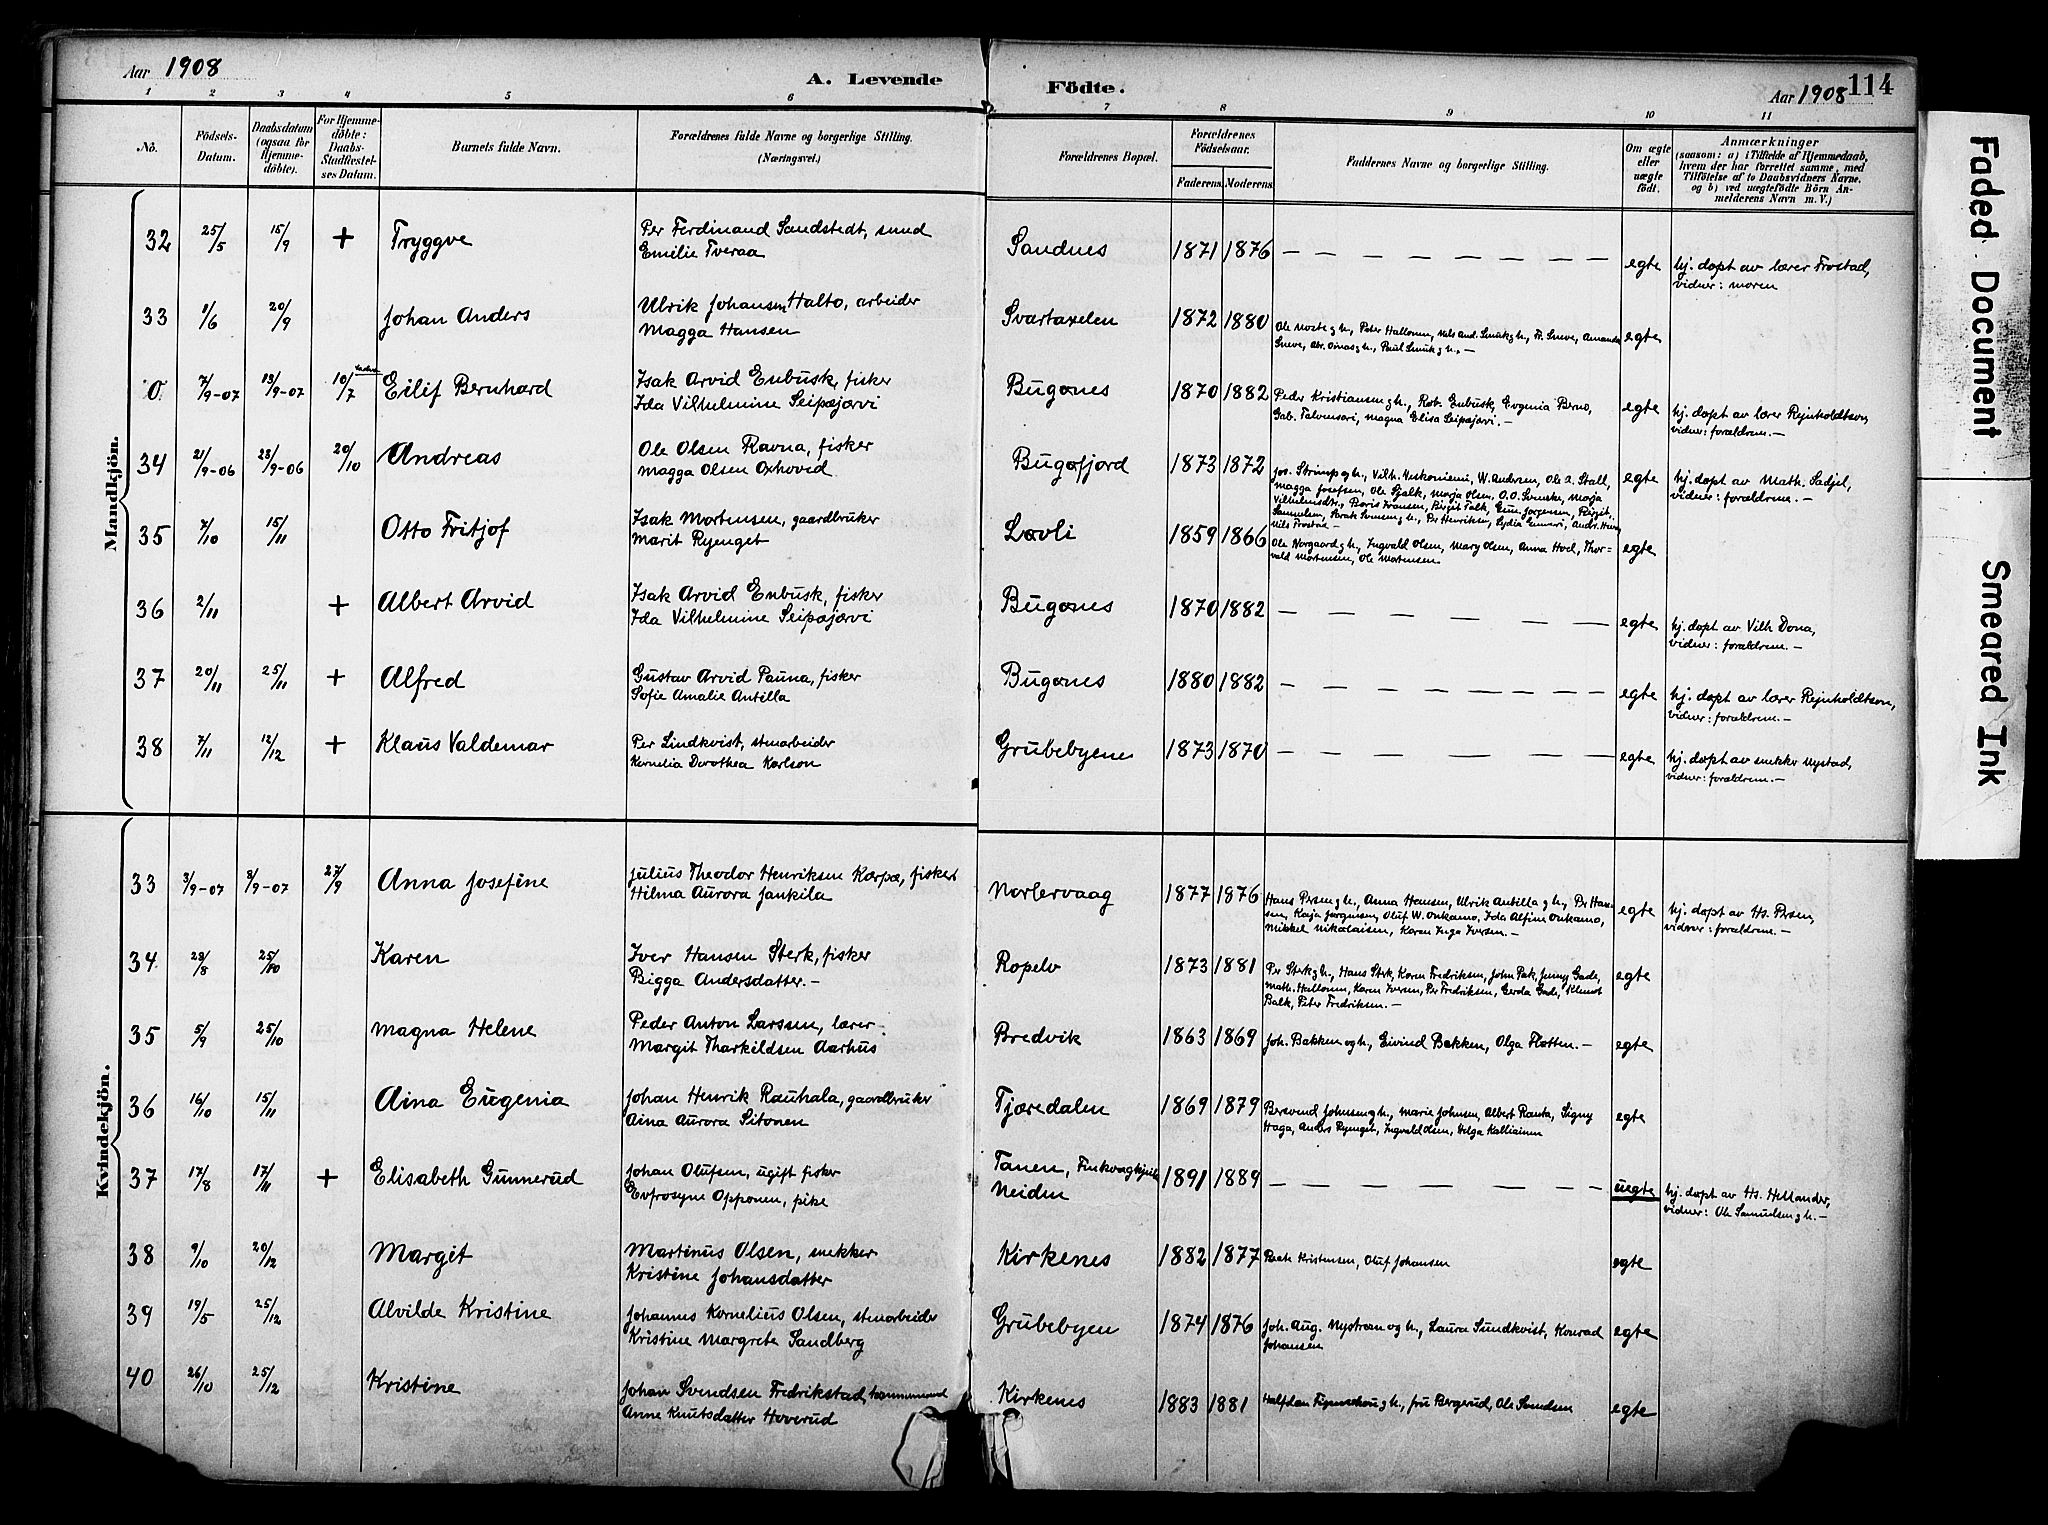 Aar 1908
A. Levende
Födte.
Aar 1908
114
1 2 3 4 5 6 7 8 9 10 11
No.
Födsels-
Datum.
Daabsdatum
(ogsaa for
Hjemme-
döbte).
For Hjemme-
döbte:
Daabs-
Stadfæstel-
ses Datum.
Barnets fulde Navn.
Forældrenes fulde Navne og borgerlige Stilling.
(Næringsvei.)
Forældrenes Bopæl.
Forældrenes
Födselsaar.
Faderens. Moderens.
Faddernes Navne og borgerlige Stilling.
Om ægte
eller
uægte
födt.
Anmærkninger
(saasom: a) i Tilfælde af Hjemmedaab,
hvem der har forrettet samme, med
Tilföielse af to Daabsvidners Navne,
og b) ved uægtefödte Börn An-
melderens Navn m. V.)
Mandkjön.
32 25/5 15/9 + Tryggve
Per Ferdinand Sandstedt, smed
Emilie Tveraa
Sandnes 1871 1876 — — — — — — — egte
hj. døpt av lærer Frostad,
vidner: moren
33 1/6 20/9 Johan Anders
Ulrik Johansen Halto, arbeider
Magga Hansen
Svartaxelen 1872 1880
egte
0 7/9-07 13/9-07 10/7 Eilif Bernhard
Isak Arvid Enbusk, fisker
Ida Vilhelmine Seipæjærvi
Bugønes 1870 1882
Peder Kristiansen g h., Rob. Enbusk, Evgenia Bernø,
Gab. Talvensari, Magna Elisa Seipæjærvi. —
egte
hj. døpt av lærer Reinholdtsen,
vidner: forældrene. —
34 21/9-06 23/9-06 20/10 Andreas
Ole Olsen Ravna, fisker
Magga Olsen Oxhovid
Bugøfjord 1873 1872
egte
hj. døpt av Math. Sadjel,
vidner: forældrene. —
35 7/10 15/11 Otto Fritjof
Isak Mortensen, gaardbruker
Marit Ryenget
Løvli 1859 1866
Ole Norgaard g h., Ingvald Olsen, Mary Olsen, Anna Hoel, Thor-
vald Mortensen, Ole Mortensen.
egte
36 2/11 + Albert Arvid
Isak Arvid Enbusk, fisker
Ida Vilhelmine Seipæjærvi
Bugønes 1870 1882 — — — — — — — egte
hj. døpt av Vilh Dona,
vidner: forældrene. —
37 20/11 25/11 + Alfred
Gustav Arvid Pauna, fisker
Sofie Amalie Antilla
Bugønes 1880 1882 — — — — — — — egte
hj. døpt av lærer Reinholdtsen,
vidner: forældrene. —
38 7/11 12/12 + Klaus Valdemar
Per Lindkvist, stenarbeider
Kornelia Dorothea Karlson
Grubebyene 1873 1870 — — — — — — — egte
hj. døpt av snekker Nystad,
vidner: forældrene. —
Kvindekjön.
33 3/9-07 8/9-07 27/9 Anna Josefine
Julius Theodor Henriksen Karpæ, fisker
Hilma Aurora Jankila
Norlervaag 1877 1876
Hans Persen g h., Anna Hansen, Ulrik Antilla g h., Per Han-
sen, Kaja Jørgensen, Oluf W. Onkamo, Ida Alfine Onkamo,
Mikkel Nikolaisen, Karen Inga Iversen. —
egte
hj. døpt av Hs. Persen,
vidner: forældrene. —
34 23/8 25/10 Karen
Iver Hansen Sterk, fisker
Bigga Andersdatter. —
Ropelv 1873 1881
Per Sterk g h., Hans Sterk, Karen Fredriksen, John Pak, Jenny Gade,
Math. Hallonen, Karen Iversen, Per Fredriksen, Gerda Gade, Klemet
Balk, Peter Fredriksen. —
egte
35 5/9 25/10 Magna Helene
Peder Anton Larssen, lærer
Margit Tharkildsen Aarhus
Bredvik 1863 1869
Joh. Bakken og h., Eivind Bakken, Olga Fløtten. —
egte
36 16/10 15/11 Aina Eugenia
Johan Henrik Rauhala, gaardbruker
Aina Aurora Sitonen
Tjæredalen 1869 1879
Bersvend Johnsen g h., Marie Johnsen, Albert Ranta, Signy
Haga, Anders Ryenget, Ingvald Olsen, Helga Kalliainen
egte
37 17/8 17/11 + Elisabeth Gunnerud
Johan Olufsen, ugift fisker
Evfrosyne Opponen, pike
Tanen,
Neiden
1891 1889 — — — — — — — uegte
hj. døpt av Hs. Hellander,
vidner: Ole Samuelsen g h. —
38 9/10 20/12 Margit
Martinus Olsen, snekker
Kristine Johansdatter
Kirkenes 1882 1877
Kristensen, Oluf Johansen
egte
39 19/5 25/12 Alvilde Kristine
Johannes Kornelius Olsen, stenarbeider
Kristine Margrete Sandberg
Grubebyen 1874 1876
Joh. Aug. Nystrøm og h., Laura Sundkvist, Konrad
Johansen
egte
40 26/10 25/12 Kristine
Johan Svendsen Fredrikstad,
Anne Knutsdatter Hoverud
Kirkenes 1883 1881
fru Bergerud, Ole Svendsen
egte
Faded Document
Smeared Ink